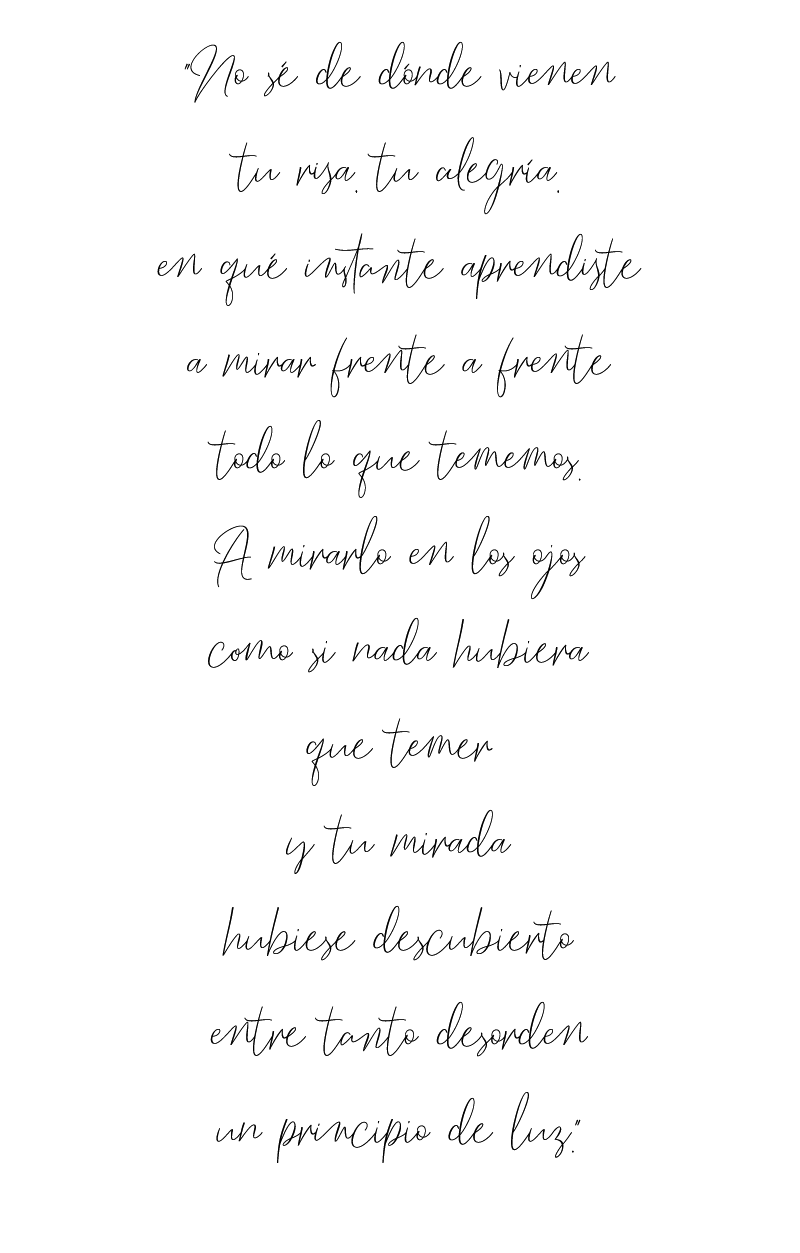 "No sé de dónde vienen
tu risa, tu alegría,
en qué instante aprendiste
a mirar frente a frente
todo lo que tememos.
A mirarlo en los ojos
como si nada hubiera
que temer
y tu mirada
hubiese descubierto
entre tanto desorden
un principio de luz."